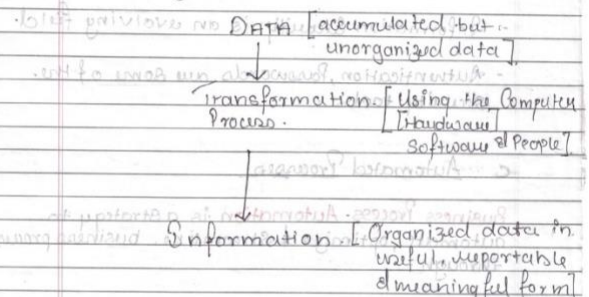 DATA [accumulated but
unorganized data]
Transformation [Using the Computer
Process. [Hardware]
Software & People]
Information [Organized data in
useful, reportable
& meaningful form]